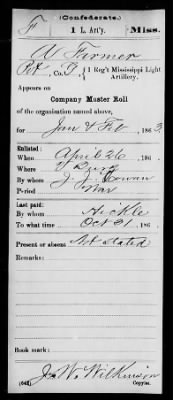 (Confederate.)
F 1 L. Art'y. Miss.
A Firmer
Pvt, Co. B, 1 Reg't Mississippi Light Artillery.
Appears on
Company Muster Roll
of the organization named above,
for Jan & Feb, 1863.
Enlisted:
When April 26, 186 .
Where V Burg
By whom J. J. Cowan
Period War
Last paid:
By whom Hickle
To what time Oct 31, 186 .
Present or absent Not Stated
Remarks:
Book mark:
J. W. Wilkinson
(642) Copyist.